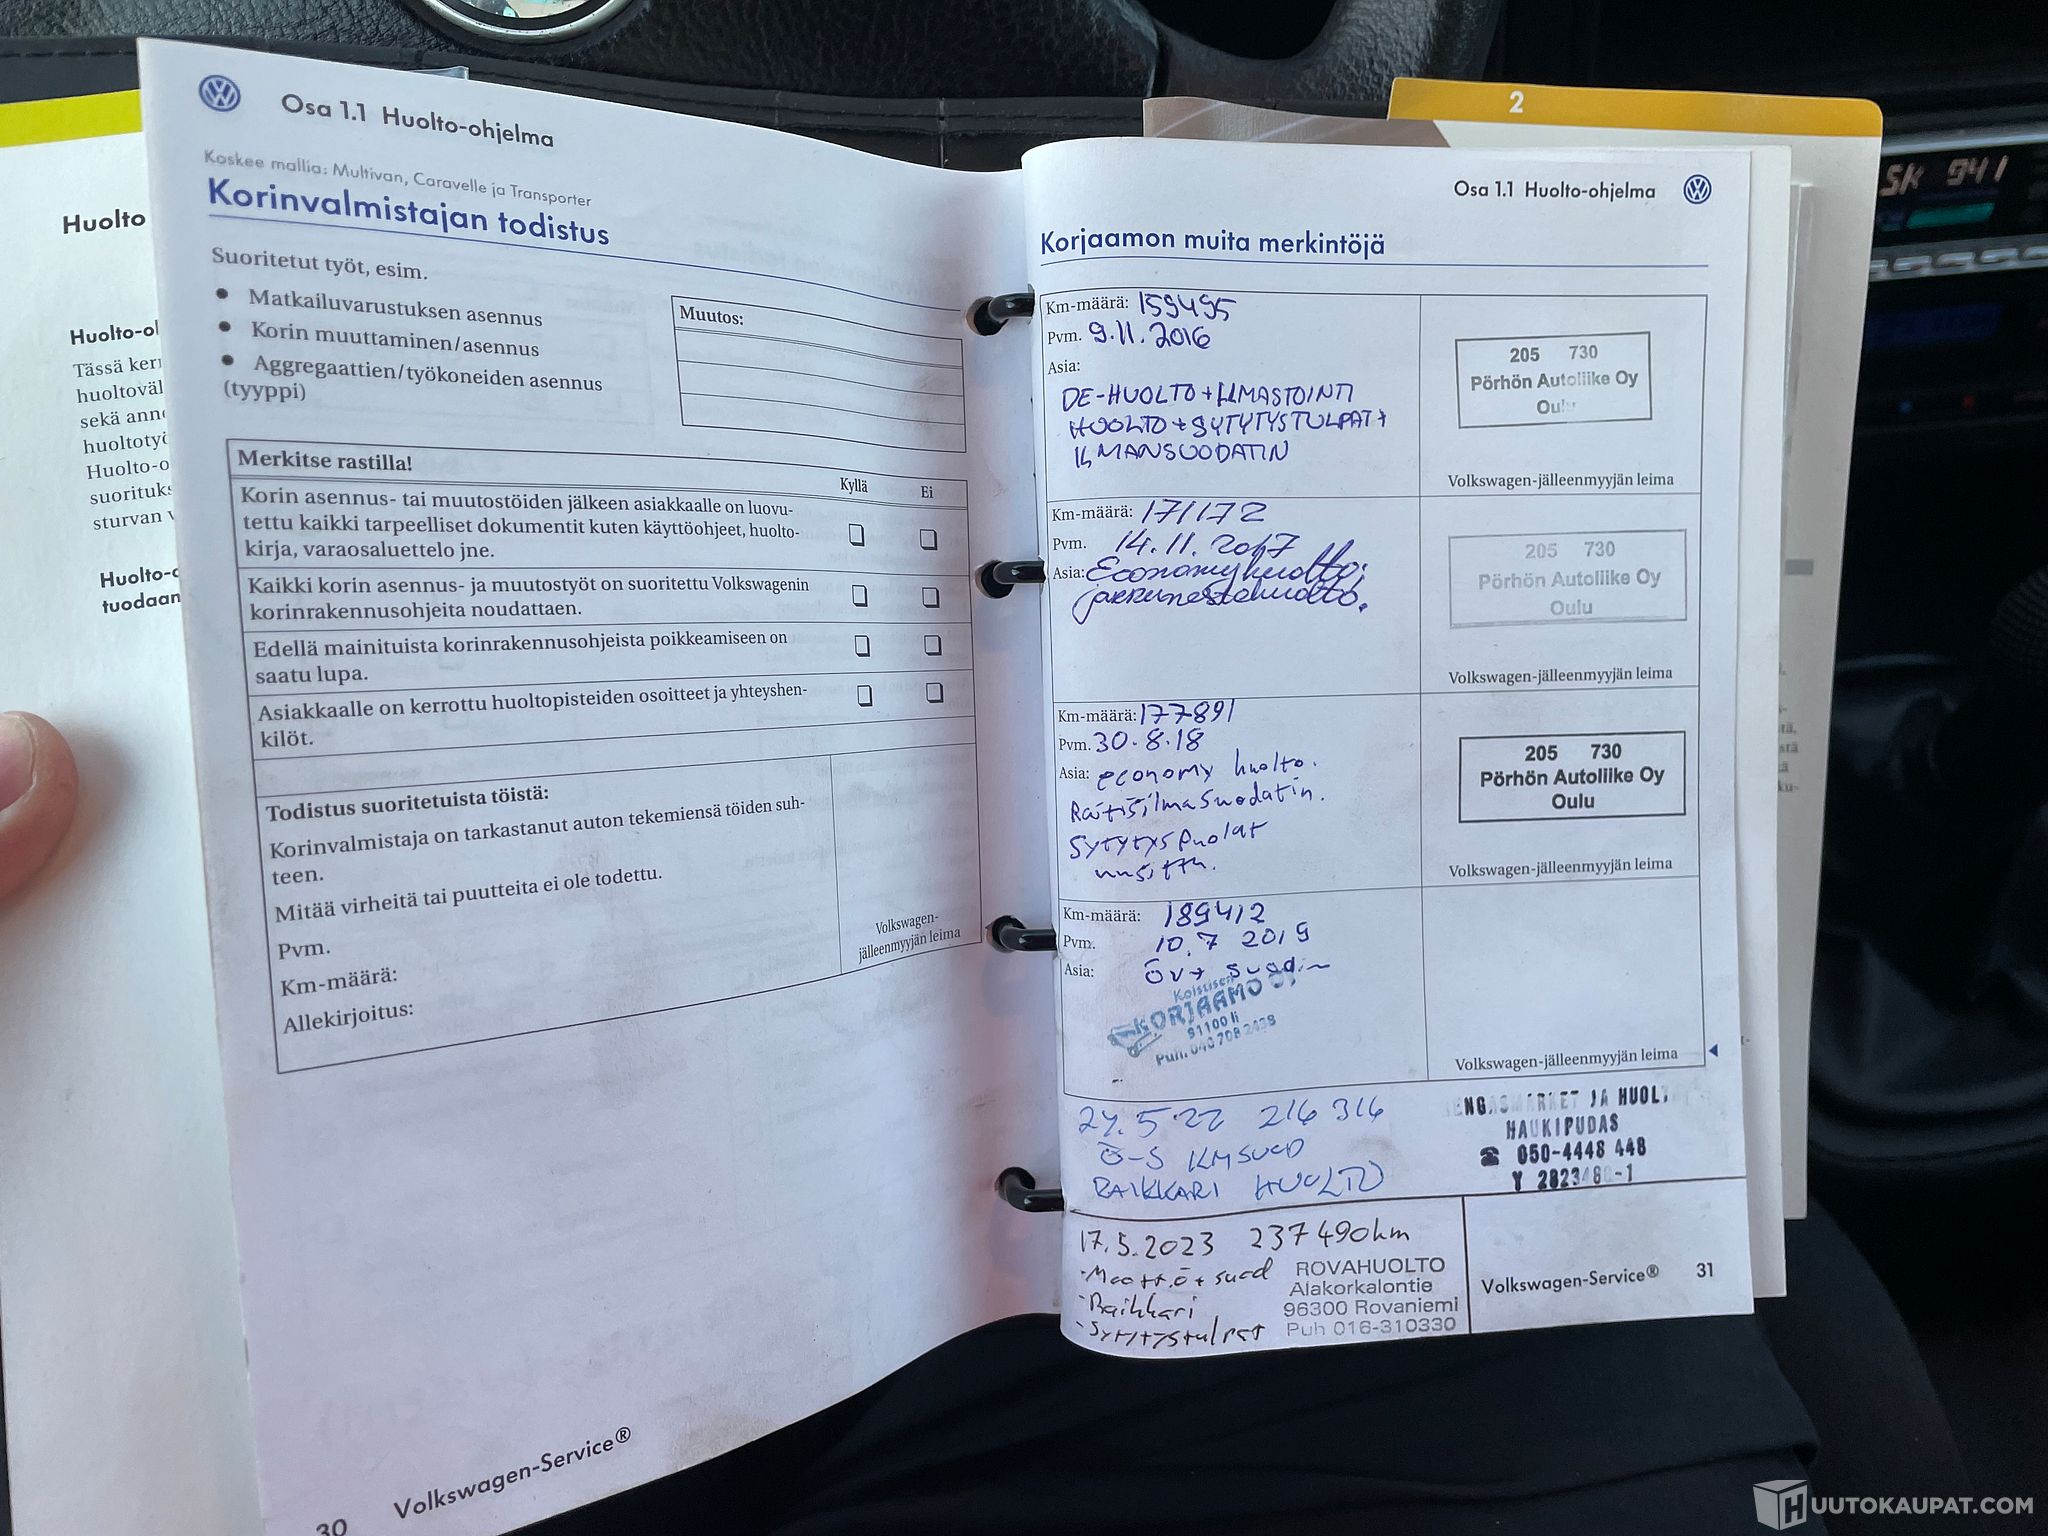 Huolto
Huolto-ol
Tässä kerr
huoltoväl
sekä anne
huoltotyö
Huolto-o
suorituks
sturvan v
Huolto-c
tuodaan
Osa 1.1 Huolto-ohjelma
Koskee mallia: Multivan, Caravelle ja Transporter
Korinvalmistajan todistus
Suoritetut työt, esim.
• Matkailuvarustuksen asennus
• Korin muuttaminen/asennus
• Aggregaattien/työkoneiden asennus
(tyyppi)
Muutos:
Merkitse rastilla!
Kyllä
Ei
Korin asennus- tai muutostöiden jälkeen asiakkaalle on luovu-
tettu kaikki tarpeelliset dokumentit kuten käyttöohjeet, huolto-
kirja, varaosaluettelo jne.
Kaikki korin asennus- ja muutostyöt on suoritettu Volkswagenin
korinrakennusohjeita noudattaen.
Edellä mainituista korinrakennusohjeista poikkeamiseen on
saatu lupa.
Asiakkaalle on kerrottu huoltopisteiden osoitteet ja yhteyshen-
kilöt.
Todistus suoritetuista töistä:
Korinvalmistaja on tarkastanut auton tekemiensä töiden suh-
teen.
Mitää virheitä tai puutteita ei ole todettu.
Pvm.
Km-määrä:
Allekirjoitus:
Volkswagen-
jälleenmyyjän leima
30
Volkswagen-Service®
2
SK 941
Osa 1.1 Huolto-ohjelma
Korjaamon muita merkintöjä
Km-määrä: 159495
Pvm. 9.11.2016
Asia:
DE-HUOLTO + ILMASTOINTI
HUOLTO + SYTYTYSTULPAT +
ILMANSUODATIN
205 730
Pörhön Autoliike Oy
Oulu
Volkswagen-jälleenmyyjän leima
Km-määrä: 171172
Pvm. 14.11.2017
Asia: Economyhuolto,
jarrunestehuolto.
205 730
Pörhön Autoliike Oy
Oulu
Volkswagen-jälleenmyyjän leima
Km-määrä: 177891
Pvm. 30.8.18
Asia: economy huolto.
Raitisilmasuodatin.
Sytytyspuolat
uusittu.
205 730
Pörhön Autoliike Oy
Oulu
Volkswagen-jälleenmyyjän leima
Km-määrä: 189412
Pvm. 10.7 2019
Asia: Öv+
Koistisen
KORJAAMO OY
91100 Ii
Puh. 040 708 2438
Volkswagen-jälleenmyyjän leima
24.5.22 216 316
Ö-S
RAIKKARI HUOLTO
RENGASMARKET JA HUOLTO
HAUKIPUDAS
☎ 050-4448 448
17.5.2023 237490km
-Moott.Ö+suod
-Raikkari
-Sytytystulpat
ROVAHUOLTO
Alakorkalontie
96300 Rovaniemi
Puh 016-310330
Volkswagen-Service® 31
HUUTOKAUPAT.COM